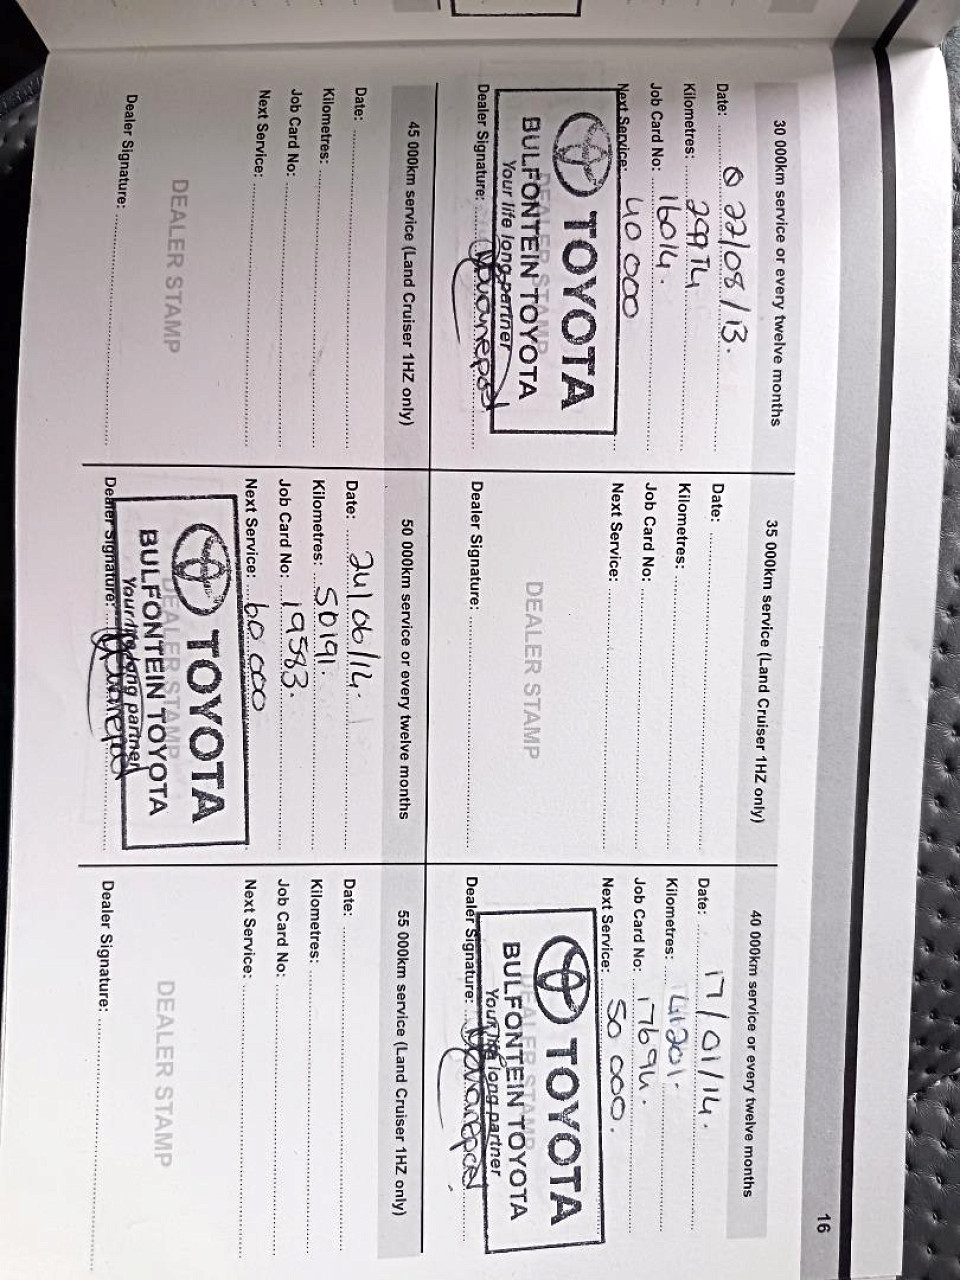 16
30 000km service or every twelve months
Date: 22/08/13.
Kilometres: 29974
Job Card No: 16014.
Next Service: 40 000
DEALER STAMP
TOYOTA
BULFONTEIN TOYOTA
Your life long partner
Dealer Signature:
35 000km service (Land Cruiser 1HZ only)
Date:
Kilometres:
Job Card No:
Next Service:
DEALER STAMP
Dealer Signature:
40 000km service or every twelve months
Date: 17/01/14.
Kilometres: 41201.
Job Card No: 17694.
Next Service: 50 000.
DEALER STAMP
TOYOTA
BULFONTEIN TOYOTA
Your life long partner
Dealer Signature:
45 000km service (Land Cruiser 1HZ only)
Date:
Kilometres:
Job Card No:
Next Service:
DEALER STAMP
Dealer Signature:
50 000km service or every twelve months
Date: 24/06/14.
Kilometres: 50191.
Job Card No: 19583.
Next Service: 60 000
DEALER STAMP
TOYOTA
BULFONTEIN TOYOTA
Your life long partner
Dealer Signature:
55 000km service (Land Cruiser 1HZ only)
Date:
Kilometres:
Job Card No:
Next Service:
DEALER STAMP
Dealer Signature: